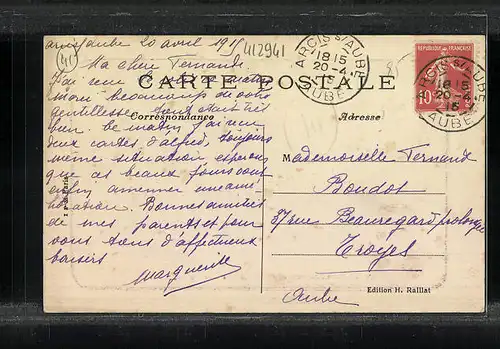 41
412941
arcis/aube 20 avril 1915
Ma chère Fernande
J'ai reçu
CARTE POSTALE
beaucoup de votre
gentillesse tout était très
Correspondance
Adresse
bien. ce matin j'ai reçu
deux cartes d'alfred, toujours
même situation esperons
que ces beaux jours vont
enfin amenner une amé-
lioration. Bonnes amitiés
de mes parents et pour
vous tous d'affectueux
baisers
Marguerite
Mademoiselle Fernand
Boudot
37 rue Beauregard prolongé
Troyes
Aube
Edition H. Raillat
ARCIS S/ AUBE
18 15
20 - 4
15
AUBE
REPUBLIQUE FRANÇAISE
10
ARCIS S/ AUBE
18 15
20 - 4
15
AUBE